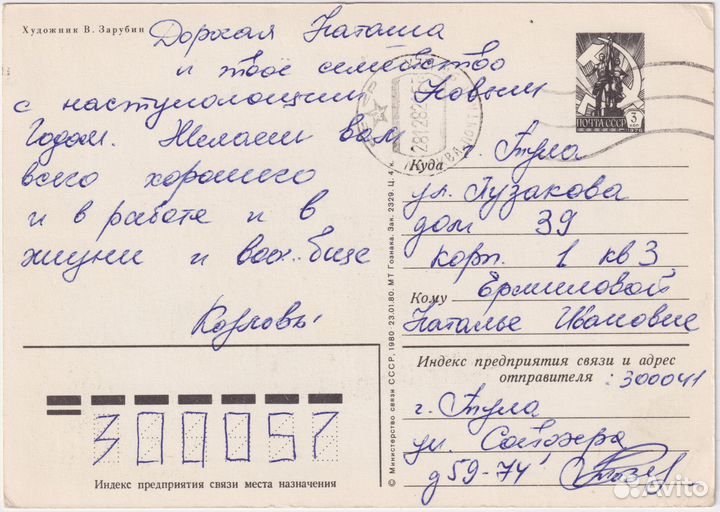 Художник В. Зарубин
Дорогая Наташа
и твое семейство
с наступающим Новым
Годом. Желаем вам
всего хорошего
и в работе и в
жизни и вообще
Козловы
ПОЧТА СССР
3
Куда г. Тула
ул. Пузакова
дом 39
корп. 1 кв 3
Кому Ермиловой
Наталье Ивановне
Индекс предприятия связи и адрес
отправителя : 300041
г. Тула
ул.
д 59-74
300057
Индекс предприятия связи места назначения
© Министерство связи СССР, 1980 23.01.80. МТ Гознака. Зак. 2329. Ц. 4 к.
Avito